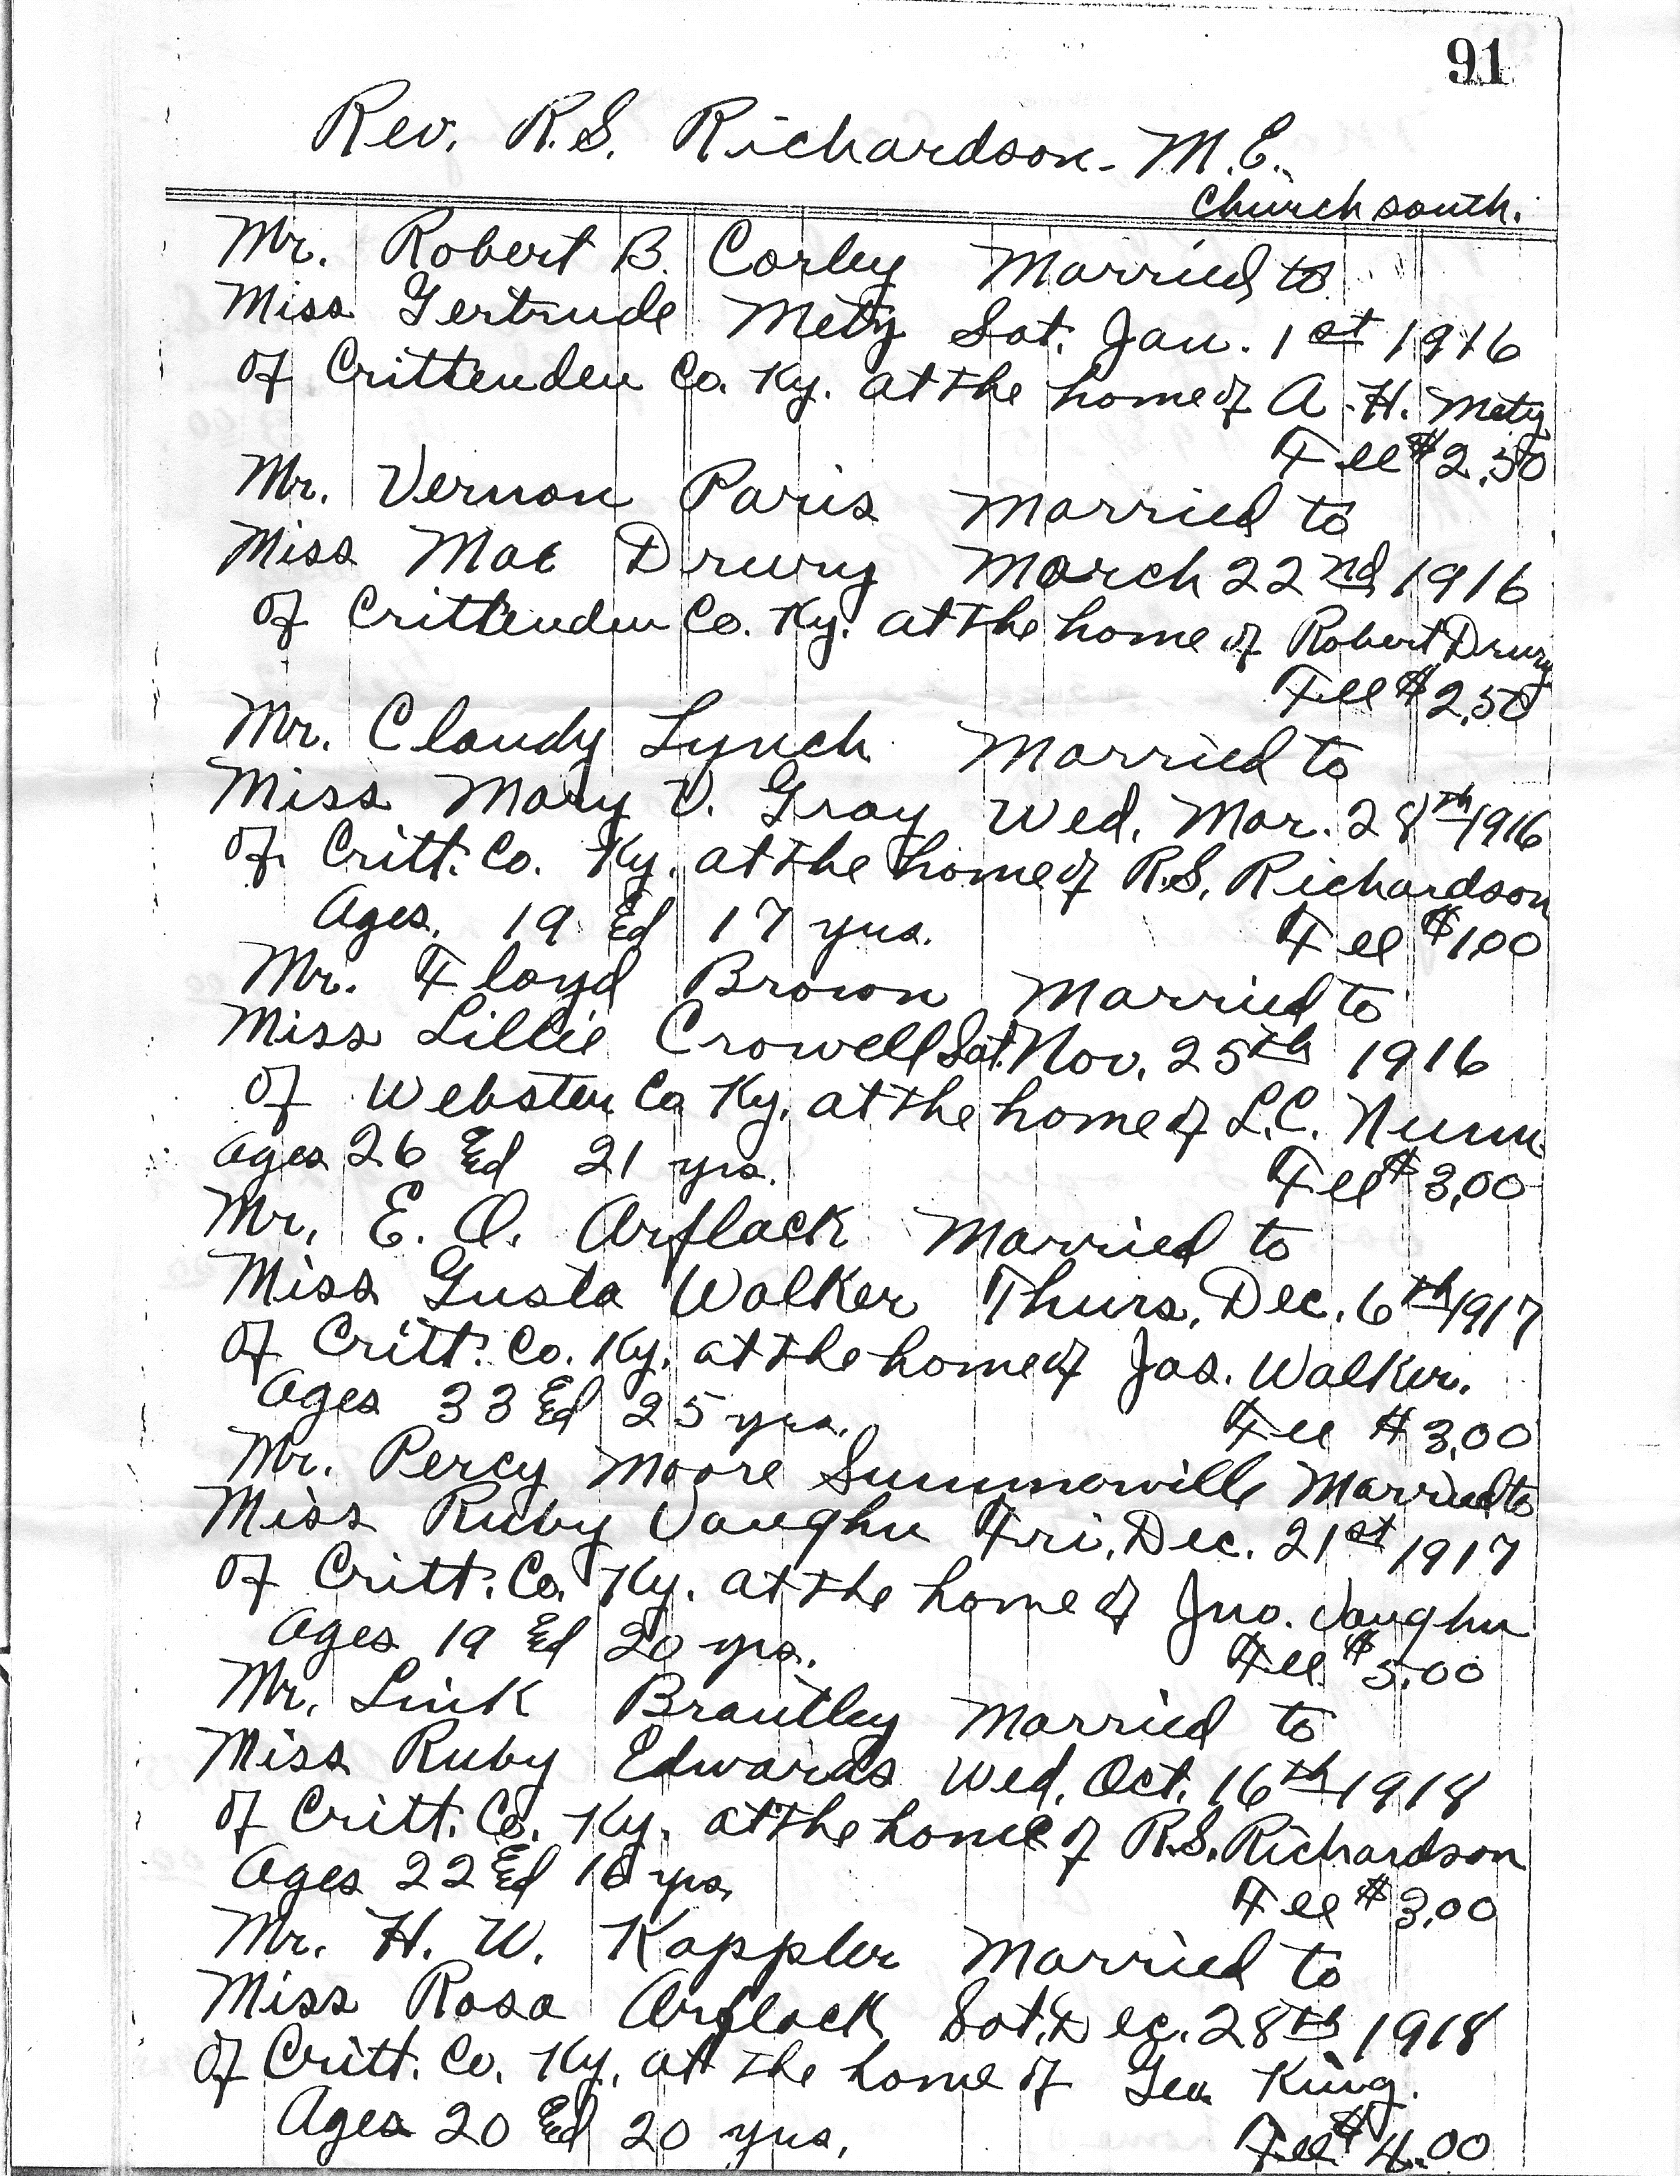 91
Rev. R.S. Richardson - M.E.
Church south.
Mr. Robert B. Corley Married to
Miss Gertrude Metz Sat. Jan. 1st 1916
of Crittenden Co. Ky. at the home of A. H. Metz
Fee $2.50
Mr. Vernon Paris Married to
Miss Mae Drury March 22nd 1916
of Crittenden Co. Ky. at the home of Robert Drury
Fee $2.50
Mr. Claudy Lynch Married to
Miss Mary V. Gray Wed. Mar. 28th 1916
of Critt. Co. Ky. at the home of R.S. Richardson
Ages. 19 & 17 yrs. Fee $1.00
Mr. Floyd Brown Married to
Miss Lillie Crowell Sat. Nov. 25th 1916
of Webster Co Ky. at the home of L.C. Nunn
Ages 26 & 21 yrs. Fee $3.00
Mr. E. O. Arflack Married to
Miss Gusta Walker Thurs. Dec. 6th 1917
of Critt. Co. Ky. at the home of Jas. Walker.
Ages 33 & 25 yrs. Fee $3.00
Mr. Percy Moore Summerville Married to
Miss Ruby Vaughn Fri. Dec. 21st 1917
of Critt. Co. Ky. at the home of Jno. Vaughn
Ages 19 & 20 yrs. Fee $5.00
Mr. Link Brantley Married to
Miss Ruby Edwards Wed. Oct. 16th 1918
of Critt. Co. Ky. at the home of R.S. Richardson
Ages 22 & yrs. Fee $3.00
Mr. H. W. Kappler Married to
Miss Rosa Arflack Sat. Dec. 28th 1918
of Critt. Co. Ky. at the home of Geo. King.
Ages 20 & 20 yrs. Fee $4.00